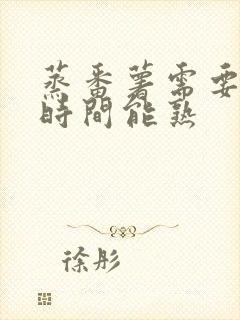 蒸番薯需要
時間能熟
徐彤